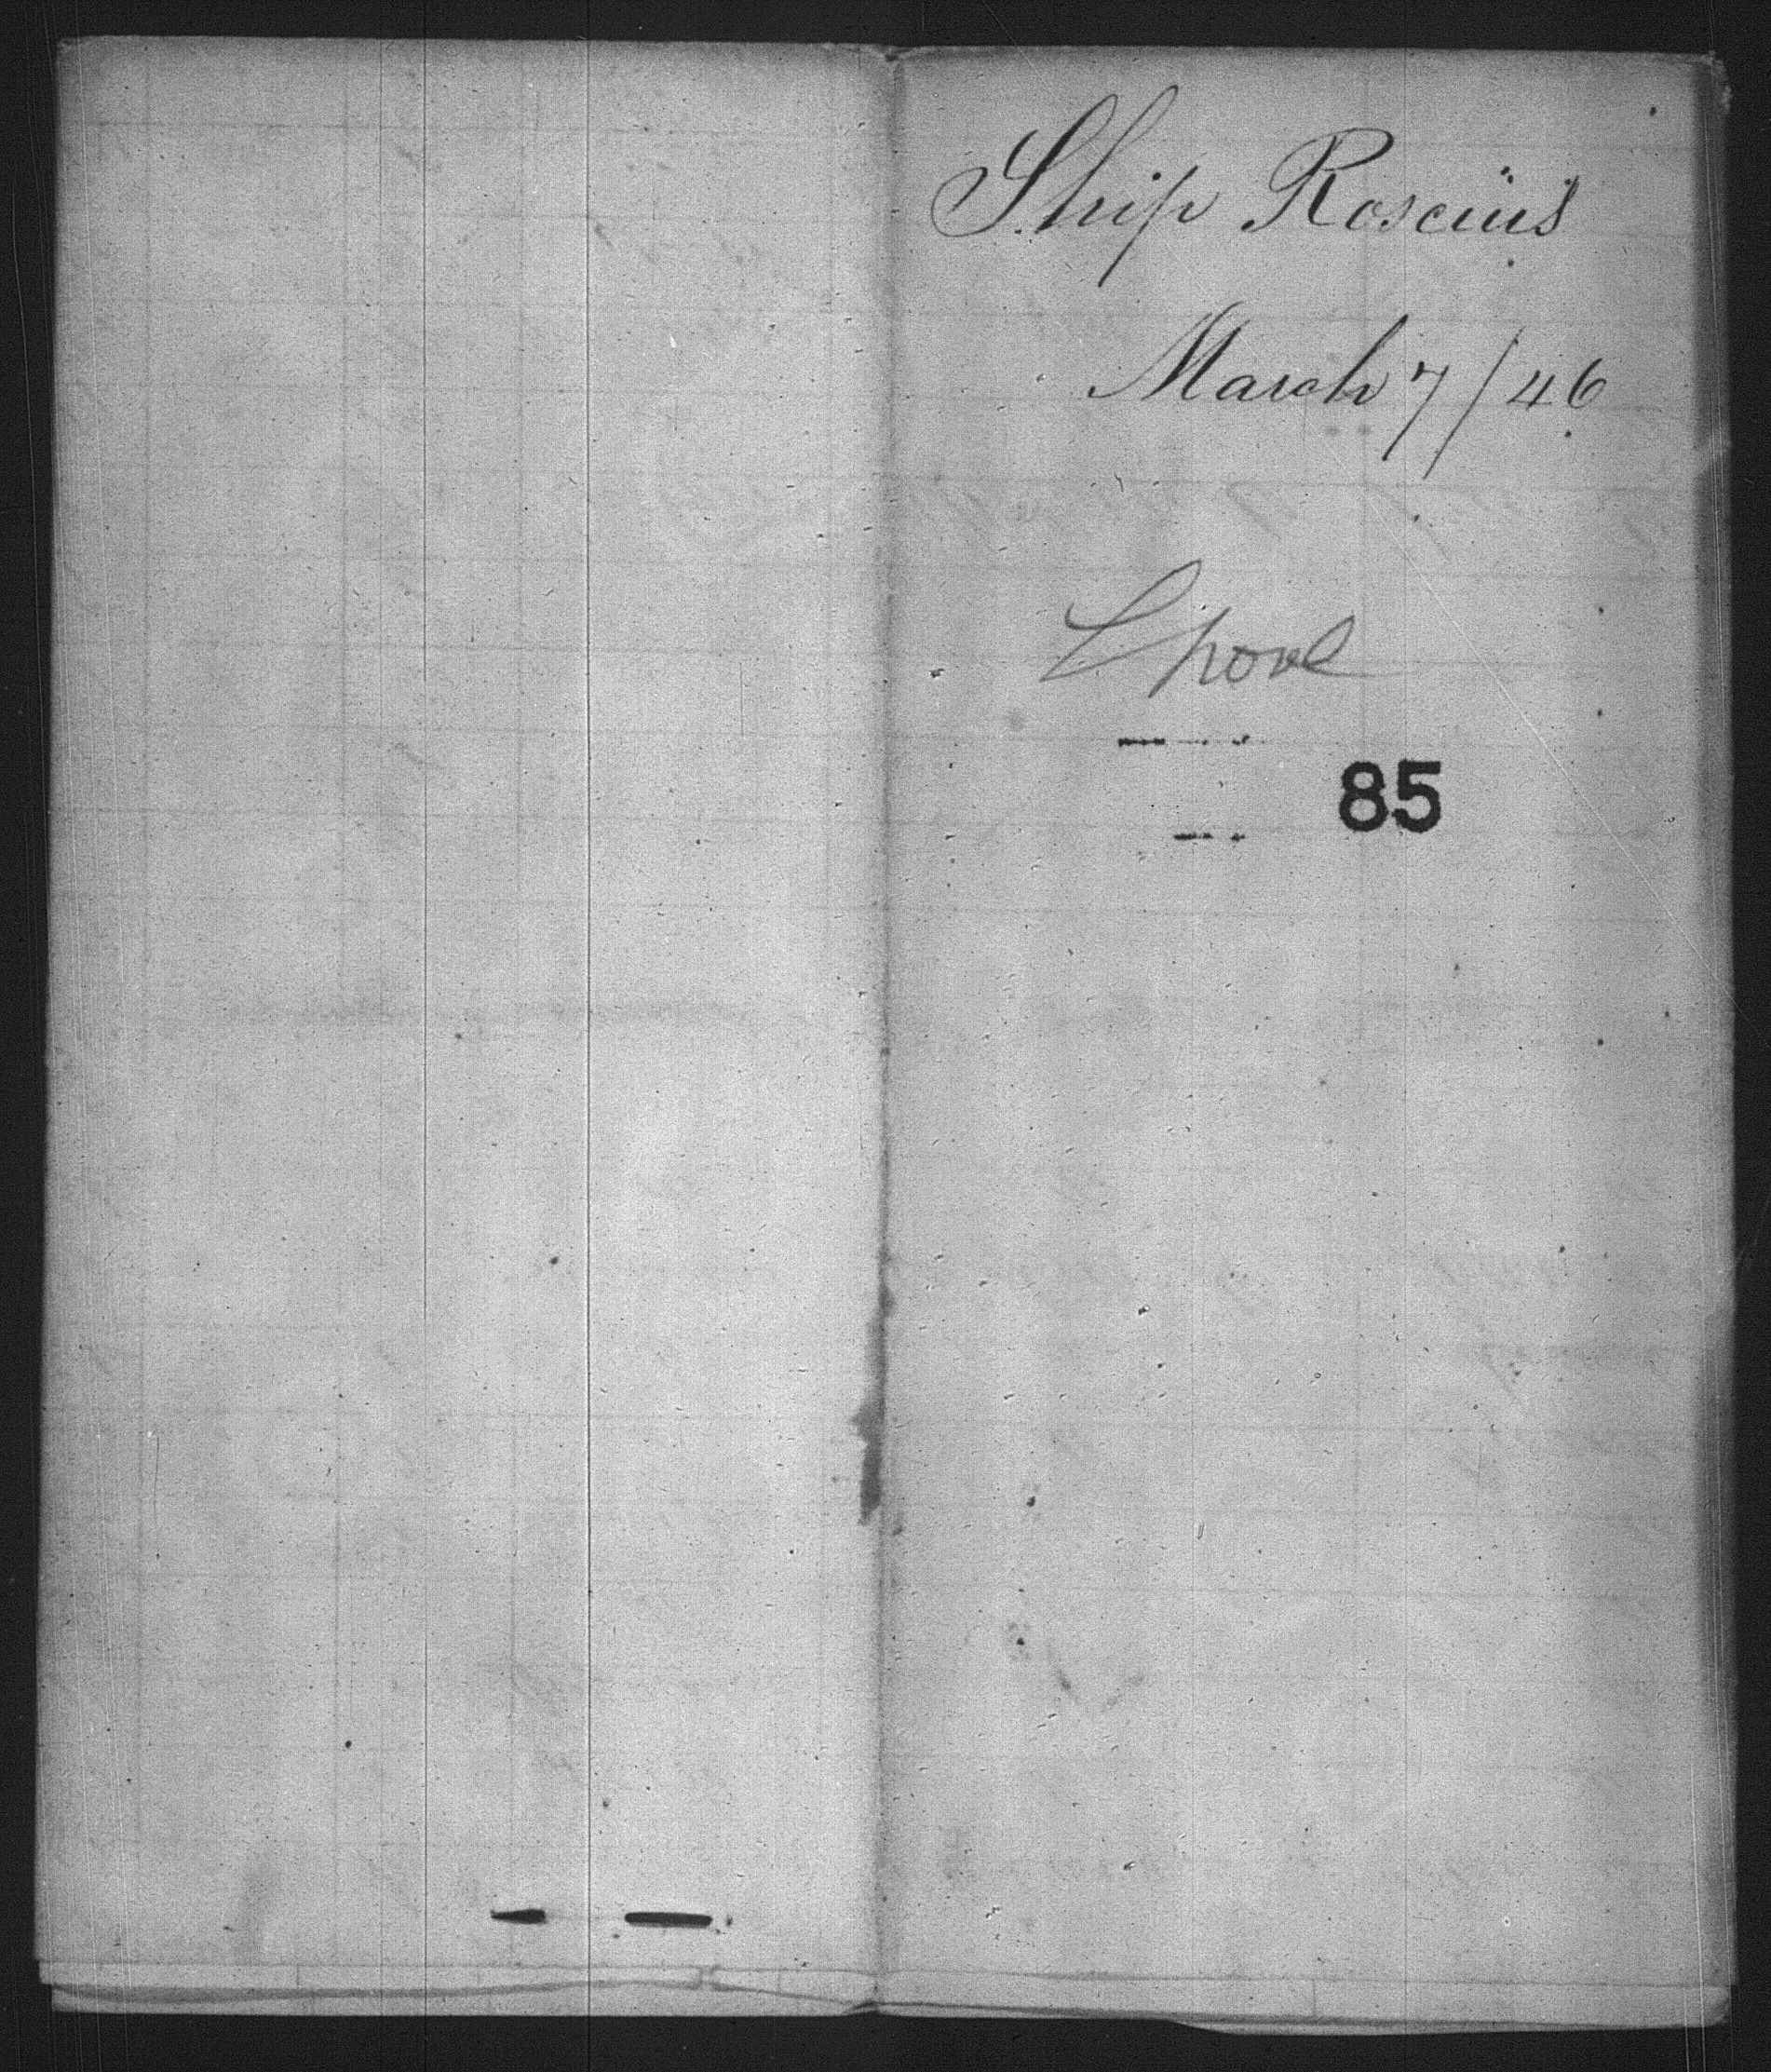 Ship Roscius
March 7/46
Lpool
85